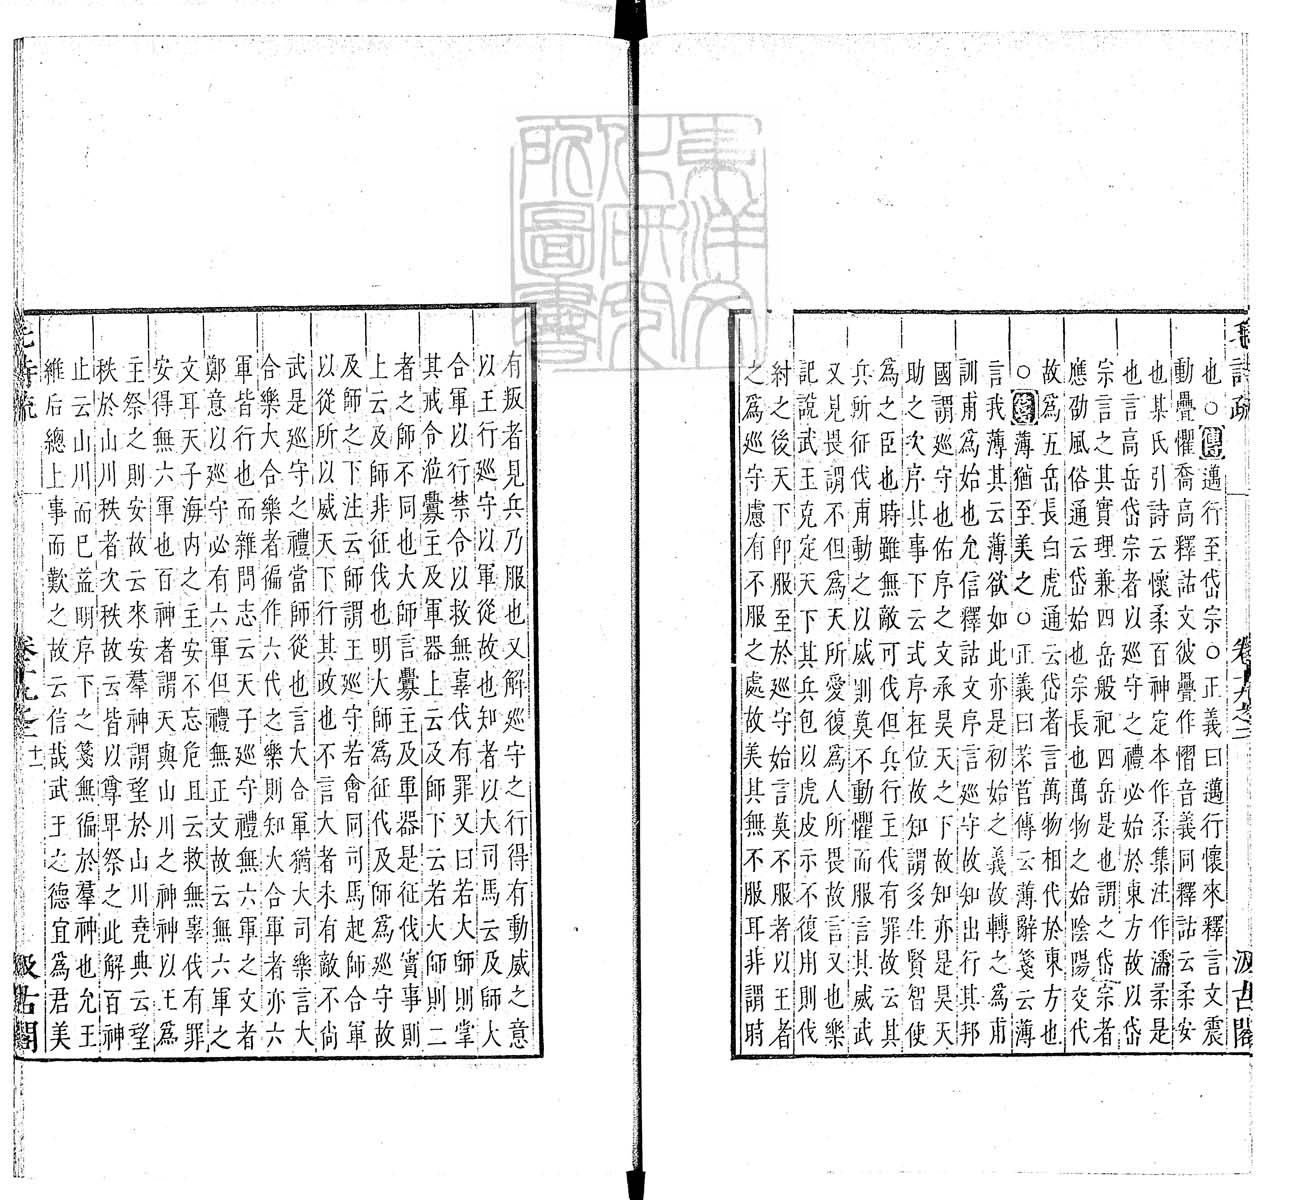 毛詩疏 卷十九之二 汲古閣
也○傳邁行至岱宗○正義曰邁行懷來釋言文震
動疊懼喬高釋詁文彼疊作慴音義同釋詁云柔安
也某氏引詩云懷柔百神定本作柔集注作濡柔是
也言高岳岱宗者以廵守之禮必始於東方故以岱
宗言之其實理兼四岳般祀四岳是也謂之岱宗者
應劭風俗通云岱始也宗長也萬物之始陰陽交代
故為五岳長白虎通云岱者言萬物相代於東方也
○箋薄猶至美之○正義曰芣苢傳云薄辭箋云薄
言我薄其云薄欲如此亦是初始之義故轉之為甫
訓甫為始也允信釋詁文序言廵守故知出行其邦
國謂廵守也佑序之文承昊天之下故知亦是昊天
助之次序其事下云式序在位故知謂多生賢智使
為之臣也時雖無敵可伐但兵行主伐有罪故云其
兵所征伐甫動之以威則莫不動懼而服言其威武
又見畏謂不但為天所愛復為人所畏故言又也樂
記說武王克定天下其兵包以虎皮示不復用則伐
紂之後天下即服至於廵守始言莫不服者以王者
之為廵守慮有不服之處故美其無不服耳非謂時
有叛者見兵乃服也又解廵守之行得有動威之意
以王行廵守以軍從故也知者以大司馬云及師大
合軍以行禁令以救無辜伐有罪又曰若大師則掌
其戒令涖釁主及軍器上云及師下云若大師則二
者之師不同也大師言釁主及軍器是征伐實事則
上云及師非征伐也明大師為征伐及師為廵守故
及師之下注云師謂王廵守若會同司馬起師合軍
以從所以威天下行其政也不言大者未有敵不尚
武是廵守之禮當師從也言大合軍猶大司樂言大
合樂大合樂者徧作六代之樂則知大合軍者亦六
軍皆行也而雜問志云天子廵守禮無六軍之文者
鄭意以廵守必有六軍但禮無正文故云無六軍之
文耳天子海內之主安不忘危且云救無辜伐有罪
安得無六軍也百神者謂天與山川之神神以王為
主祭之則安故云來安羣神謂望於山川堯典云望
秩於山川秩者次秩故云皆以尊卑祭之此解百神
止云山川而已益明序下之箋無徧於羣神也允王
維后總上事而歎之故云信哉武王之德宜為君美
毛詩疏 卷十九之二 十二 汲古閣
東洋文化研究所圖書